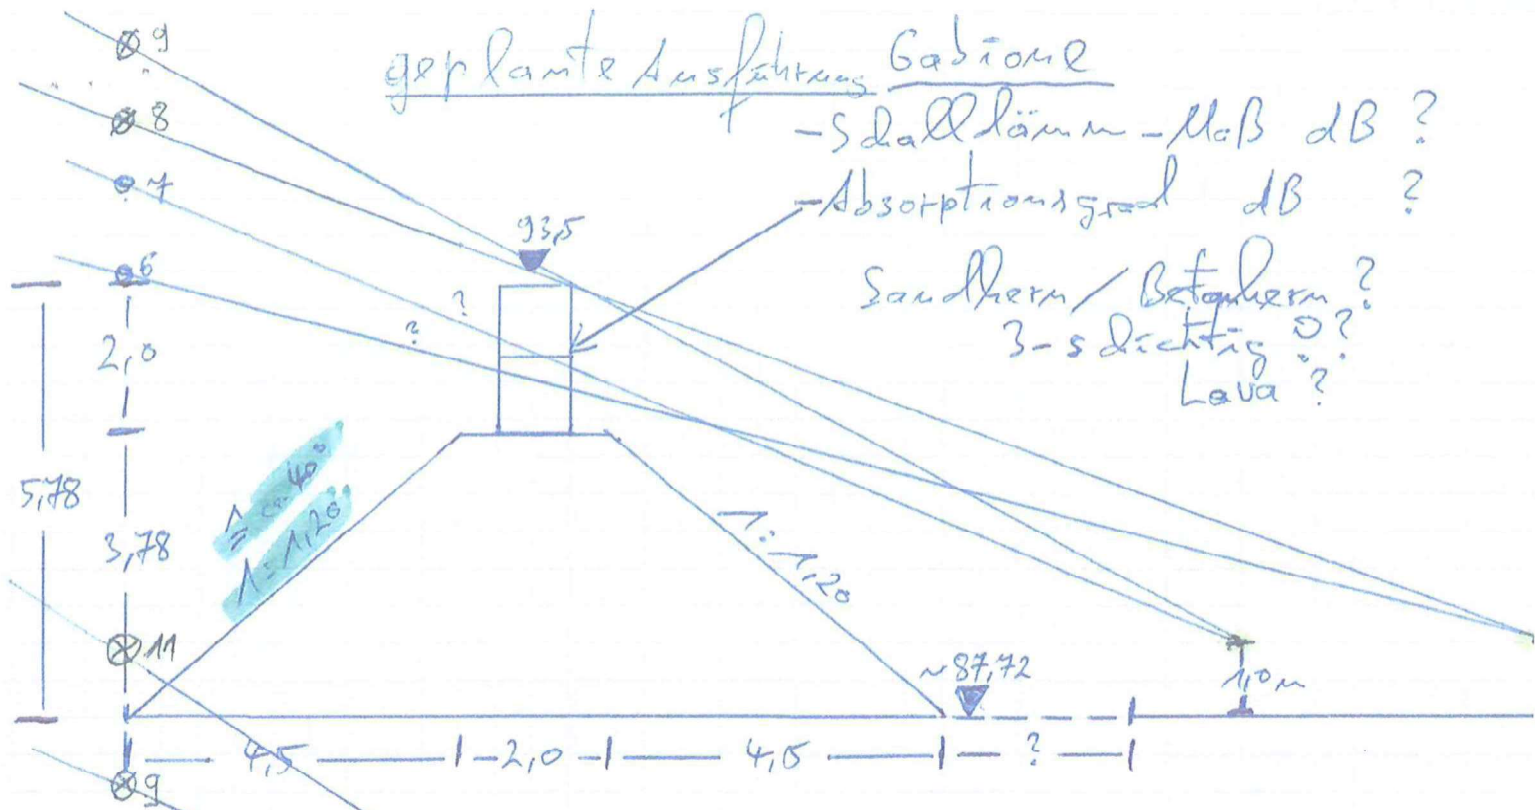 9
geplante Ausführung Gabione
8
- Schalldämm-Maß dB ?
7
- Absorptionsgrad dB ?
93,5
6
Sandkern / Betonkern ?
?
3-schichtig ?
?
2,0
Lava ?
≙ ca. 40°
5,78
1:1,20
3,78
1:1,20
11
~87,72
1,0 m
4,5
2,0
4,5
?
9